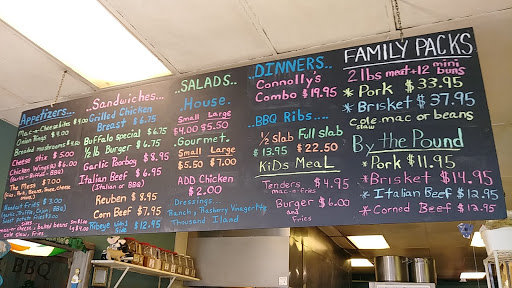 Appetizers...
Mac-n-Cheese bites $4.00
Onion Rings $4.00
Breaded mushrooms $4.50
Cheese Stix $5.00
Chicken Wings (6) $6.00
The Mess $7.00
Fries $3.00
..Sandwiches...
Grilled Chicken
Breast $6.75
Buffalo Special $6.75
1/2 lb Burger $6.75
Garlic Roeboy $8.95
Italian Beef $6.95
(Italian or BBQ)
Reuben $8.95
Corn Beef $7.95
Ribeye $12.95
SALADS..
.House.
Small Large
$4.00 $5.50
.Gourmet.
Small Large
$5.50 $7.00
ADD Chicken
$2.00
Dressings...
Ranch, Rasberry Vinagrette
Thousand Iland
..DINNERS..
Connolly's
Combo $19.95
..BBQ Ribs....
1/2 slab Full slab
$13.95 $22.50
KiDS MeaL
Tenders $4.95
mac-n-fries
Burger $6.00
and
Fries
FAMILY PACKS
2 lbs meat + 12 mini buns
* Pork $33.95
* Brisket $37.95
cole slaw, mac or beans
By the Pound
* Pork $11.95
* Brisket $14.95
* Italian Beef $12.95
* Corned Beef $12.95
BBQ